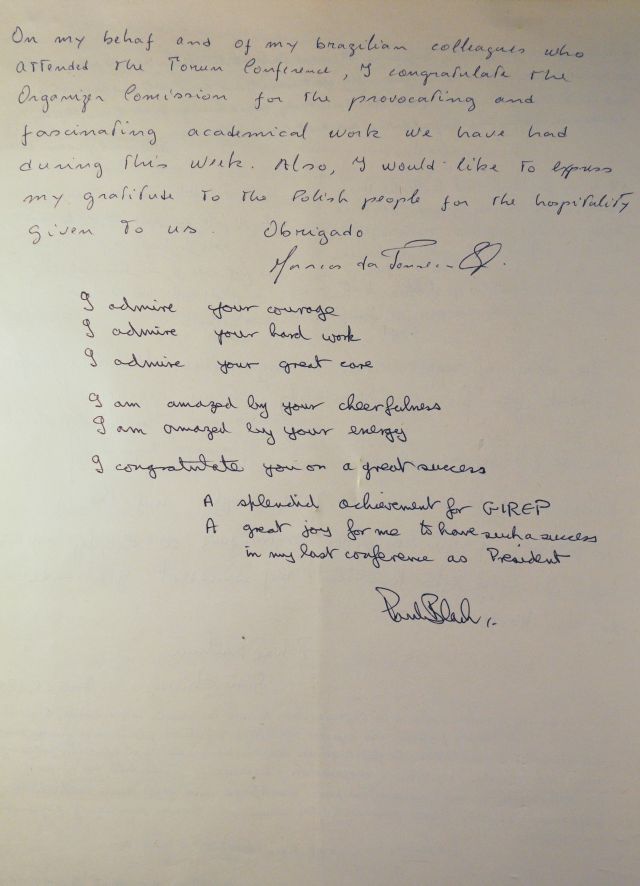 On my behaf and of my brazilian colleagues who
attended the Torun Conference, I congratulate the
Organizer Comission for the provocating and
fascinating academical work we have had
during this week. Also, I would like to express
my gratitude to the Polish people for the hospitality
given to us. Obrigado
Marcos da
I admire your courage
I admire your hard work
I admire your great care
I am amazed by your cheerfulness
I am amazed by your energy
I congratulate you on a great success
A splendid achievement for GIREP
A great joy for me to have such a success
in my last conference as President
Paul Black